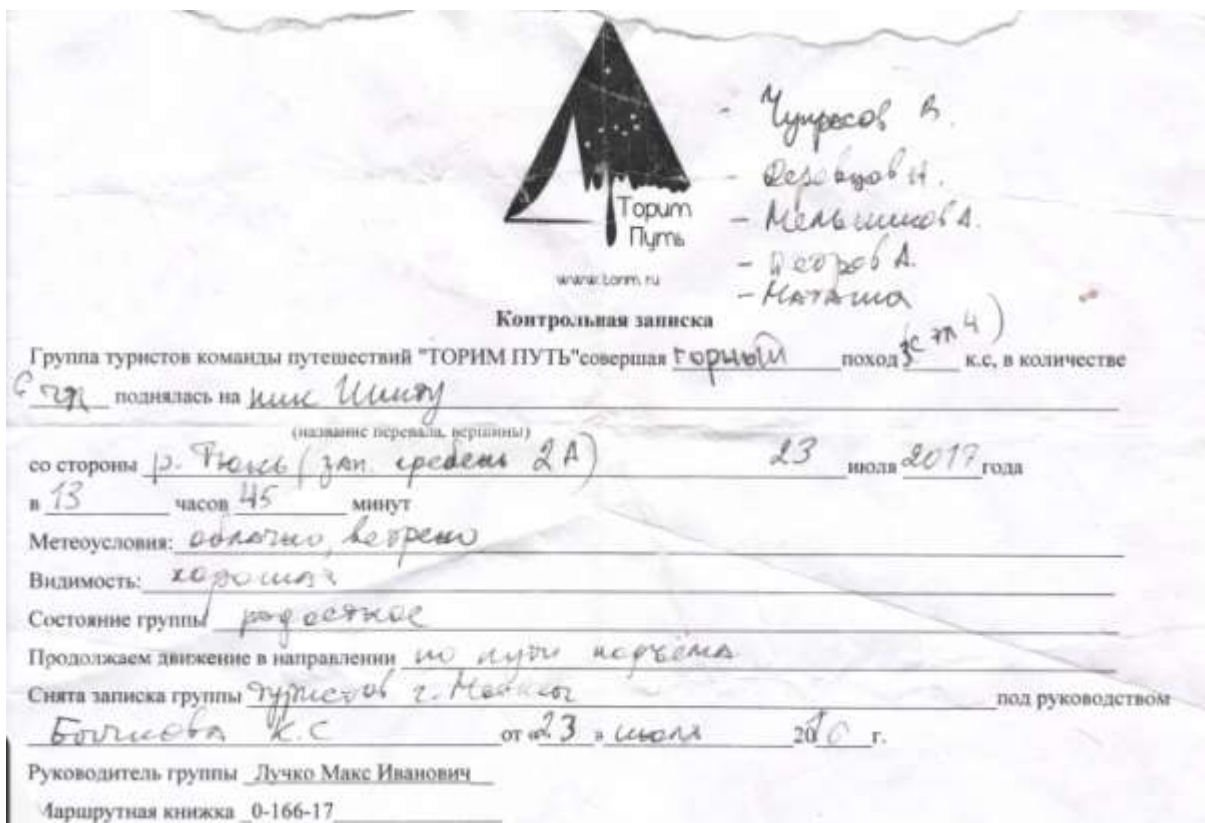 Торим
Путь
www.torim.ru
- Чупросов В.
- Деревцов И.
- Мельников А.
- Петров А.
- Наташа
Контрольная записка
Группа туристов команды путешествий "ТОРИМ ПУТЬ"совершая горный поход 3(с эл 4) к.с, в количестве
поднялась на пик Шинду
(название перевала, вершины)
со стороны р. Тюнь (зап. гребень 2А) 23 июля 2017 года
в 13 часов 45 минут
Метеоусловия: облачно, ветрено
Видимость: хорошая
Состояние группы радостное
Продолжаем движение в направлении по пути подъёма
Снята записка группы туристов г. Москвы под руководством
К.С от «23 » июля г.
Руководитель группы Лучко Макс Иванович
Маршрутная книжка 0-166-17